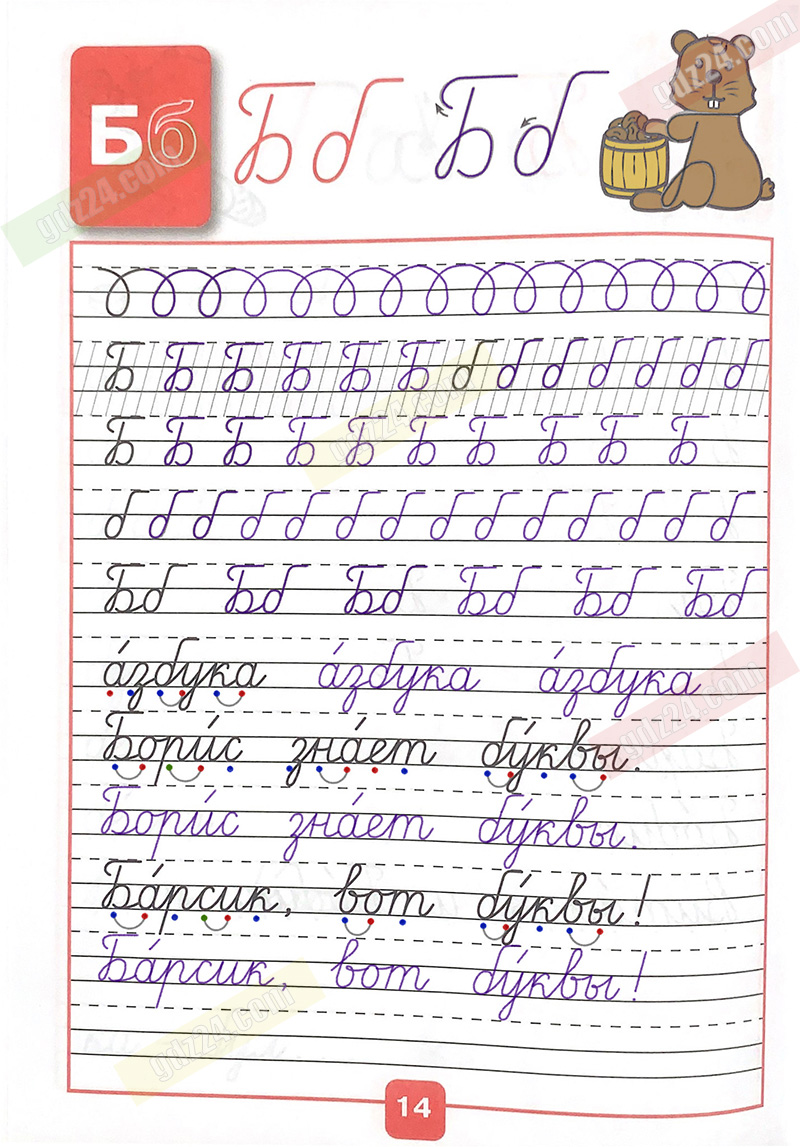 gdz24.com
Бб Б б Б б
gdz24.com
Б Б Б Б Б Б б б б б б б б
gdz24.com
Б Б Б Б Б Б Б Б Б Б
б б б б б б б б б б б б б б
Бб Бб Бб Бб Бб Бб
а́збука а́збука а́збука
gdz24.com
Бори́с зна́ет бу́квы.
Бори́с зна́ет бу́квы.
Ба́рсик, вот бу́квы!
Ба́рсик, вот бу́квы!
gdz24.com
14